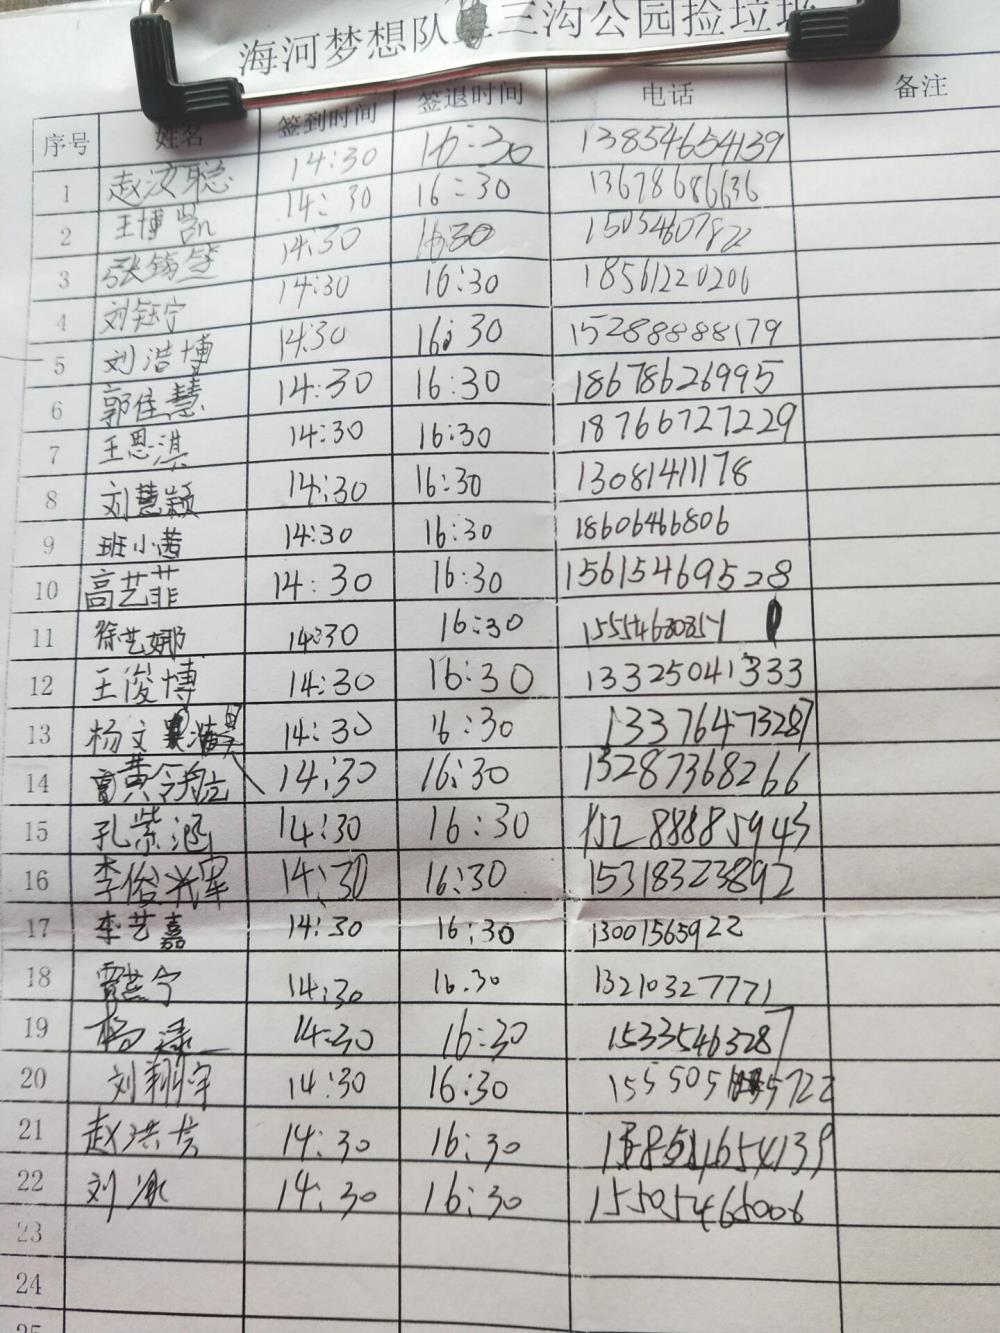 海河梦想队 三沟公园捡垃圾
序号 姓名 签到时间 签退时间 电话 备注
1 赵汶聪 14:30 16:30 13854654139
2 王博凯 14:30 16:30 13678686636
3 14:30 16:30 15054607822
4 刘钰宁 14:30 16:30 18561220206
5 刘浩博 14:30 16:30 15288888179
6 郭佳慧 14:30 16:30 18678626995
7 王思淇 14:30 16:30 18766727229
8 刘慧颖 14:30 16:30 13081411178
9 班小茜 14:30 16:30 18606466806
10 高艺菲 14:30 16:30 15615469528
11 徐艺娜 14:30 16:30
12 王俊博 14:30 16:30 13325041333
13 杨文 14:30 16:30 13376473287
14 黄 14:30 16:30 13287368266
15 孔紫涵 14:30 16:30 15288885943
16 李俊 14:30 16:30 15318323892
17 李艺嘉 14:30 16:30 13001565922
18 14:30 16:30 13210327771
19 杨 14:30 16:30 15335463287
20 刘翔宇 14:30 16:30
21 赵洪 14:30 16:30
22 刘 14:30 16:30 15505465006
23
24
25